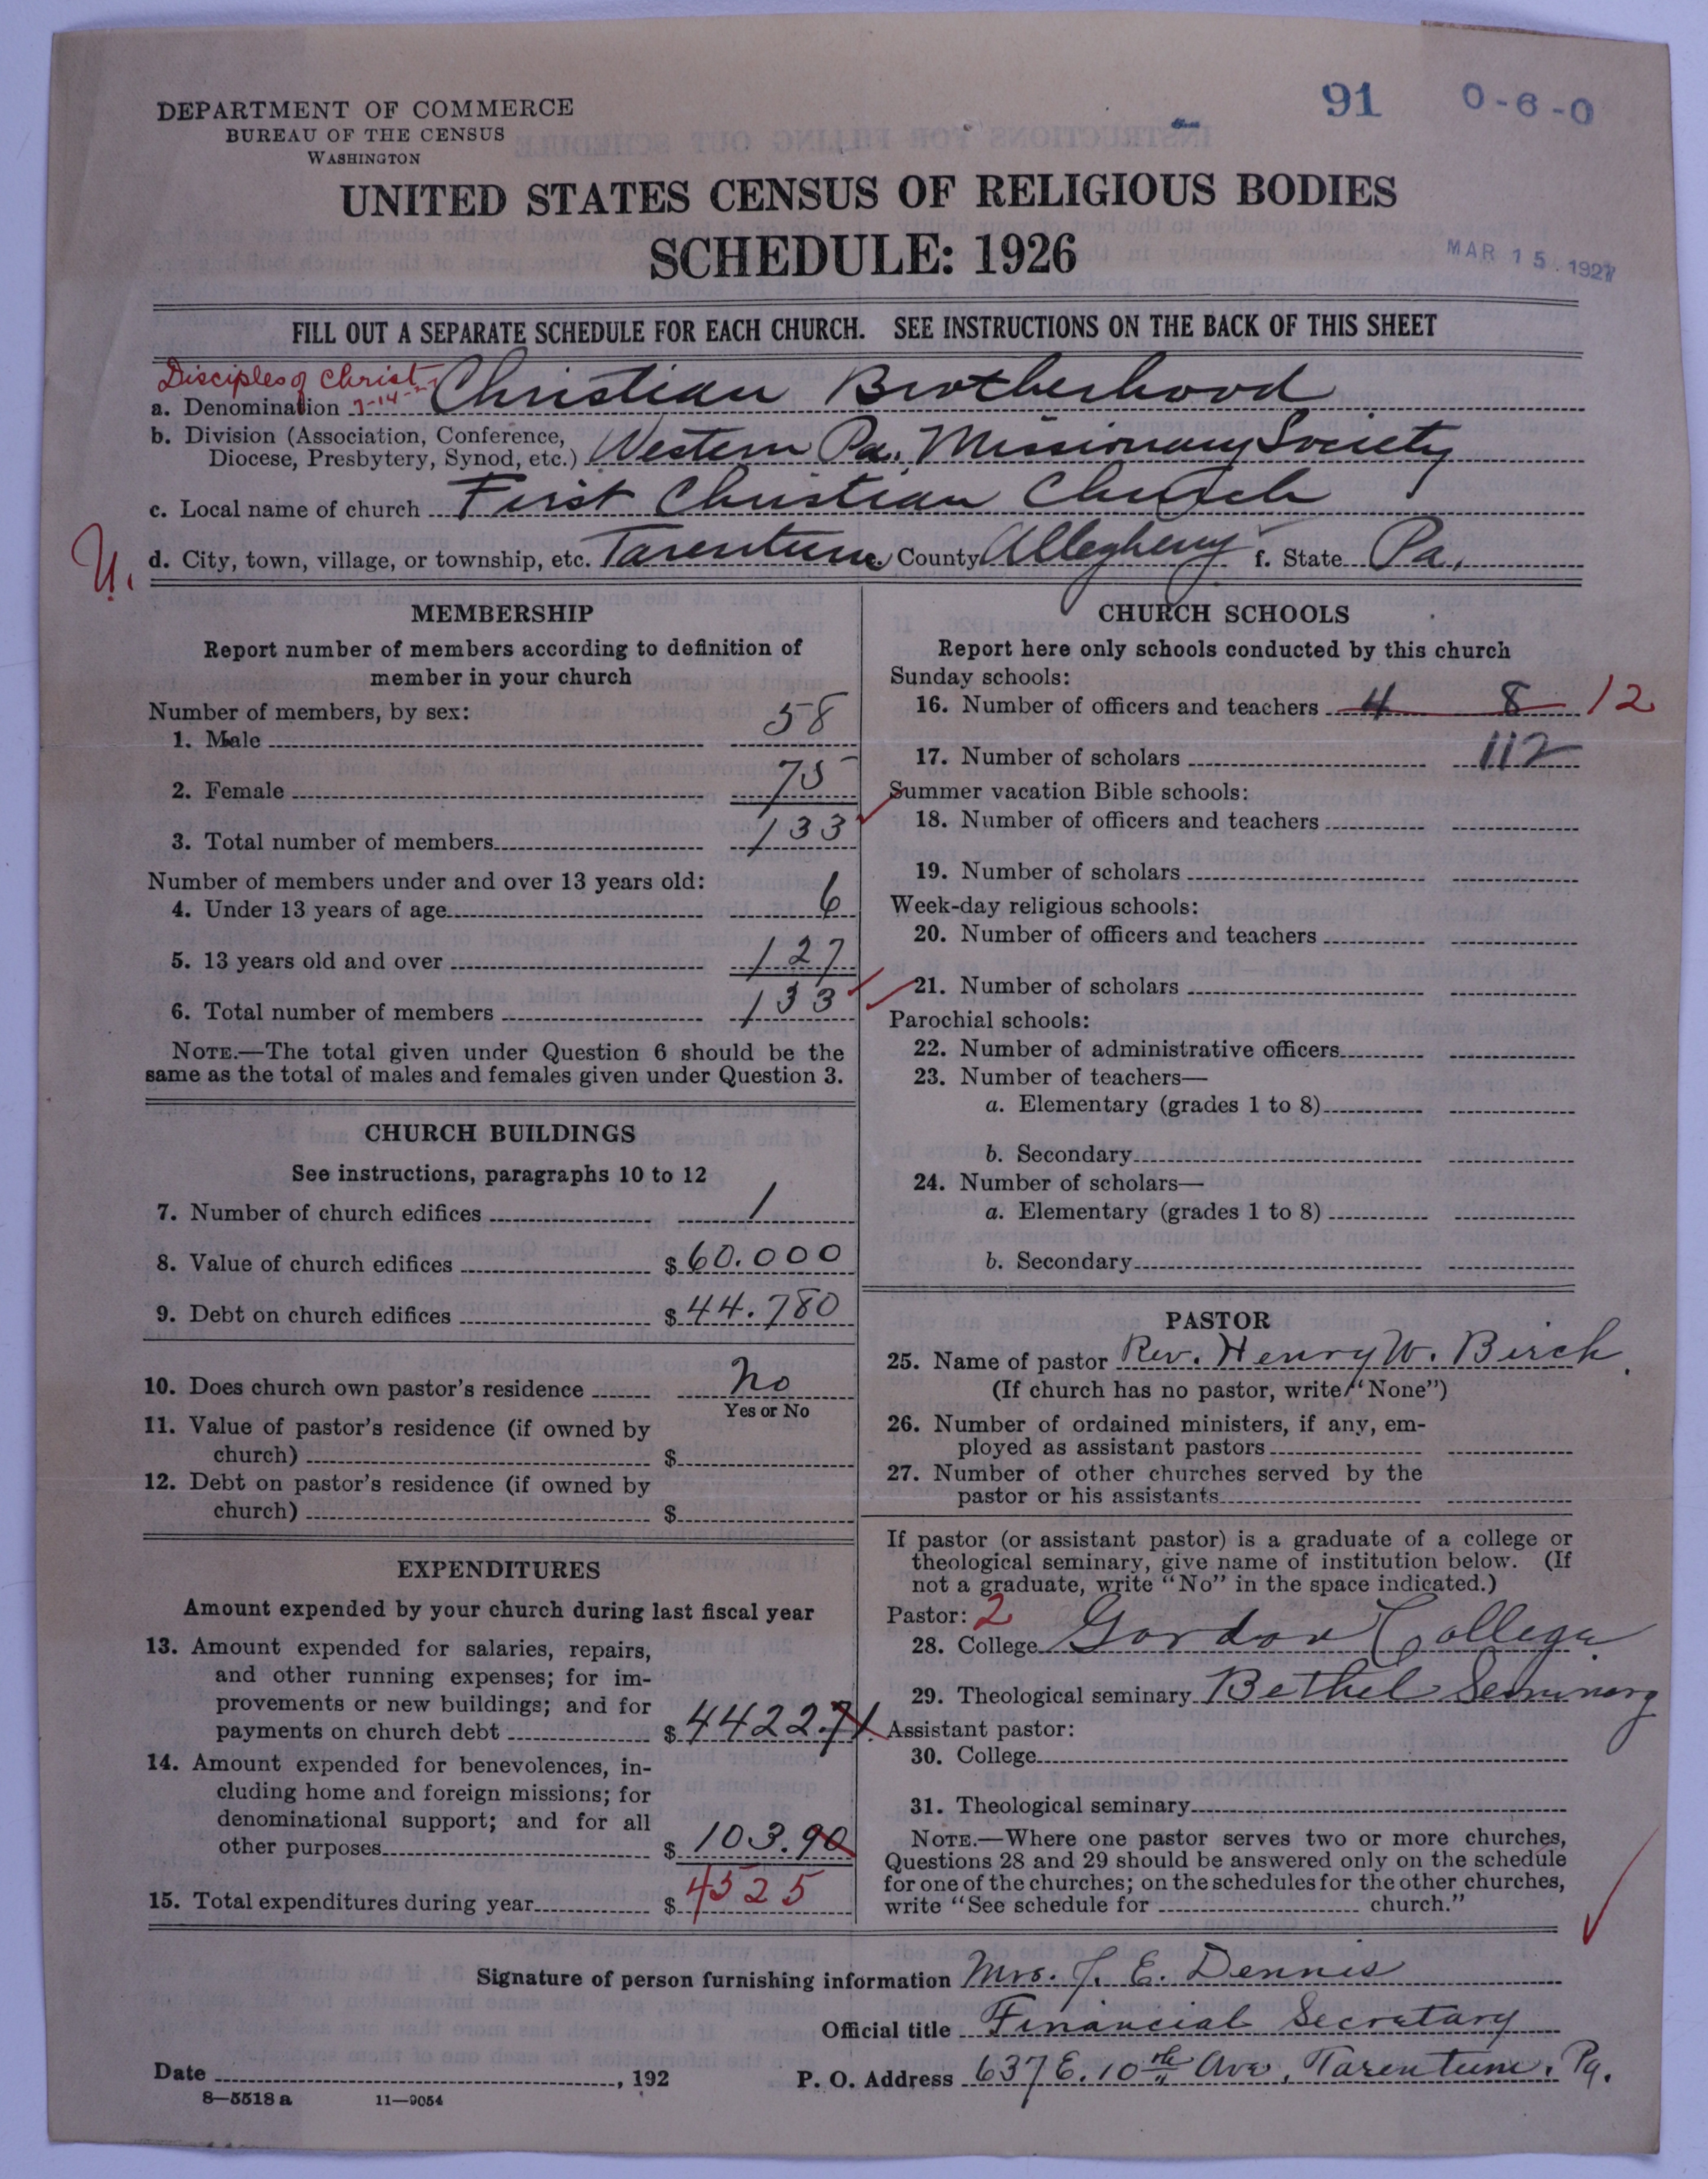 91 0-6-0
DEPARTMENT OF COMMERCE
BUREAU OF THE CENSUS
WASHINGTON
UNITED STATES CENSUS OF RELIGIOUS BODIES
SCHEDULE: 1926
MAR 15 1927
FILL OUT A SEPARATE SCHEDULE FOR EACH CHURCH. SEE INSTRUCTIONS ON THE BACK OF THIS SHEET
Disciples of Christ
a. Denomination 7-14- Christian Brotherhood
b. Division (Association, Conference,
Diocese, Presbytery, Synod, etc.) Western Pa. Missionary Society
c. Local name of church First Christian Church
U. d. City, town, village, or township, etc. Tarentum e. County Allegheny f. State Pa.
MEMBERSHIP
Report number of members according to definition of
member in your church
Number of members, by sex:
1. Male 58
2. Female 75
3. Total number of members 133
Number of members under and over 13 years old:
4. Under 13 years of age 6
5. 13 years old and over 127
6. Total number of members 133
NOTE.—The total given under Question 6 should be the
same as the total of males and females given under Question 3.
CHURCH BUILDINGS
See instructions, paragraphs 10 to 12
7. Number of church edifices 1
8. Value of church edifices $ 60.000
9. Debt on church edifices $ 44.780
10. Does church own pastor's residence No
Yes or No
11. Value of pastor's residence (if owned by
church) $
12. Debt on pastor's residence (if owned by
church) $
EXPENDITURES
Amount expended by your church during last fiscal year
13. Amount expended for salaries, repairs,
and other running expenses; for im-
provements or new buildings; and for
payments on church debt $ 4422.71
14. Amount expended for benevolences, in-
cluding home and foreign missions; for
denominational support; and for all
other purposes $ 103.90
15. Total expenditures during year $ 4525
CHURCH SCHOOLS
Report here only schools conducted by this church
Sunday schools:
16. Number of officers and teachers 4 8 12
17. Number of scholars 112
Summer vacation Bible schools:
18. Number of officers and teachers
19. Number of scholars
Week-day religious schools:
20. Number of officers and teachers
21. Number of scholars
Parochial schools:
22. Number of administrative officers
23. Number of teachers—
a. Elementary (grades 1 to 8)
b. Secondary
24. Number of scholars—
a. Elementary (grades 1 to 8)
b. Secondary
PASTOR
25. Name of pastor Rev. Henry W. Birch.
(If church has no pastor, write "None")
26. Number of ordained ministers, if any, em-
ployed as assistant pastors
27. Number of other churches served by the
pastor or his assistants
If pastor (or assistant pastor) is a graduate of a college or
theological seminary, give name of institution below. (If
not a graduate, write "No" in the space indicated.)
Pastor: 2
28. College Gordon College.
29. Theological seminary Bethel Seminary
Assistant pastor:
30. College
31. Theological seminary
NOTE.—Where one pastor serves two or more churches,
Questions 28 and 29 should be answered only on the schedule
for one of the churches; on the schedules for the other churches,
write "See schedule for church."
Signature of person furnishing information Mrs. J. E. Dennis
Official title Financial Secretary
Date , 192 P. O. Address 637 E. 10th Ave, Tarentum, Pa.
8—5518 a 11—9054